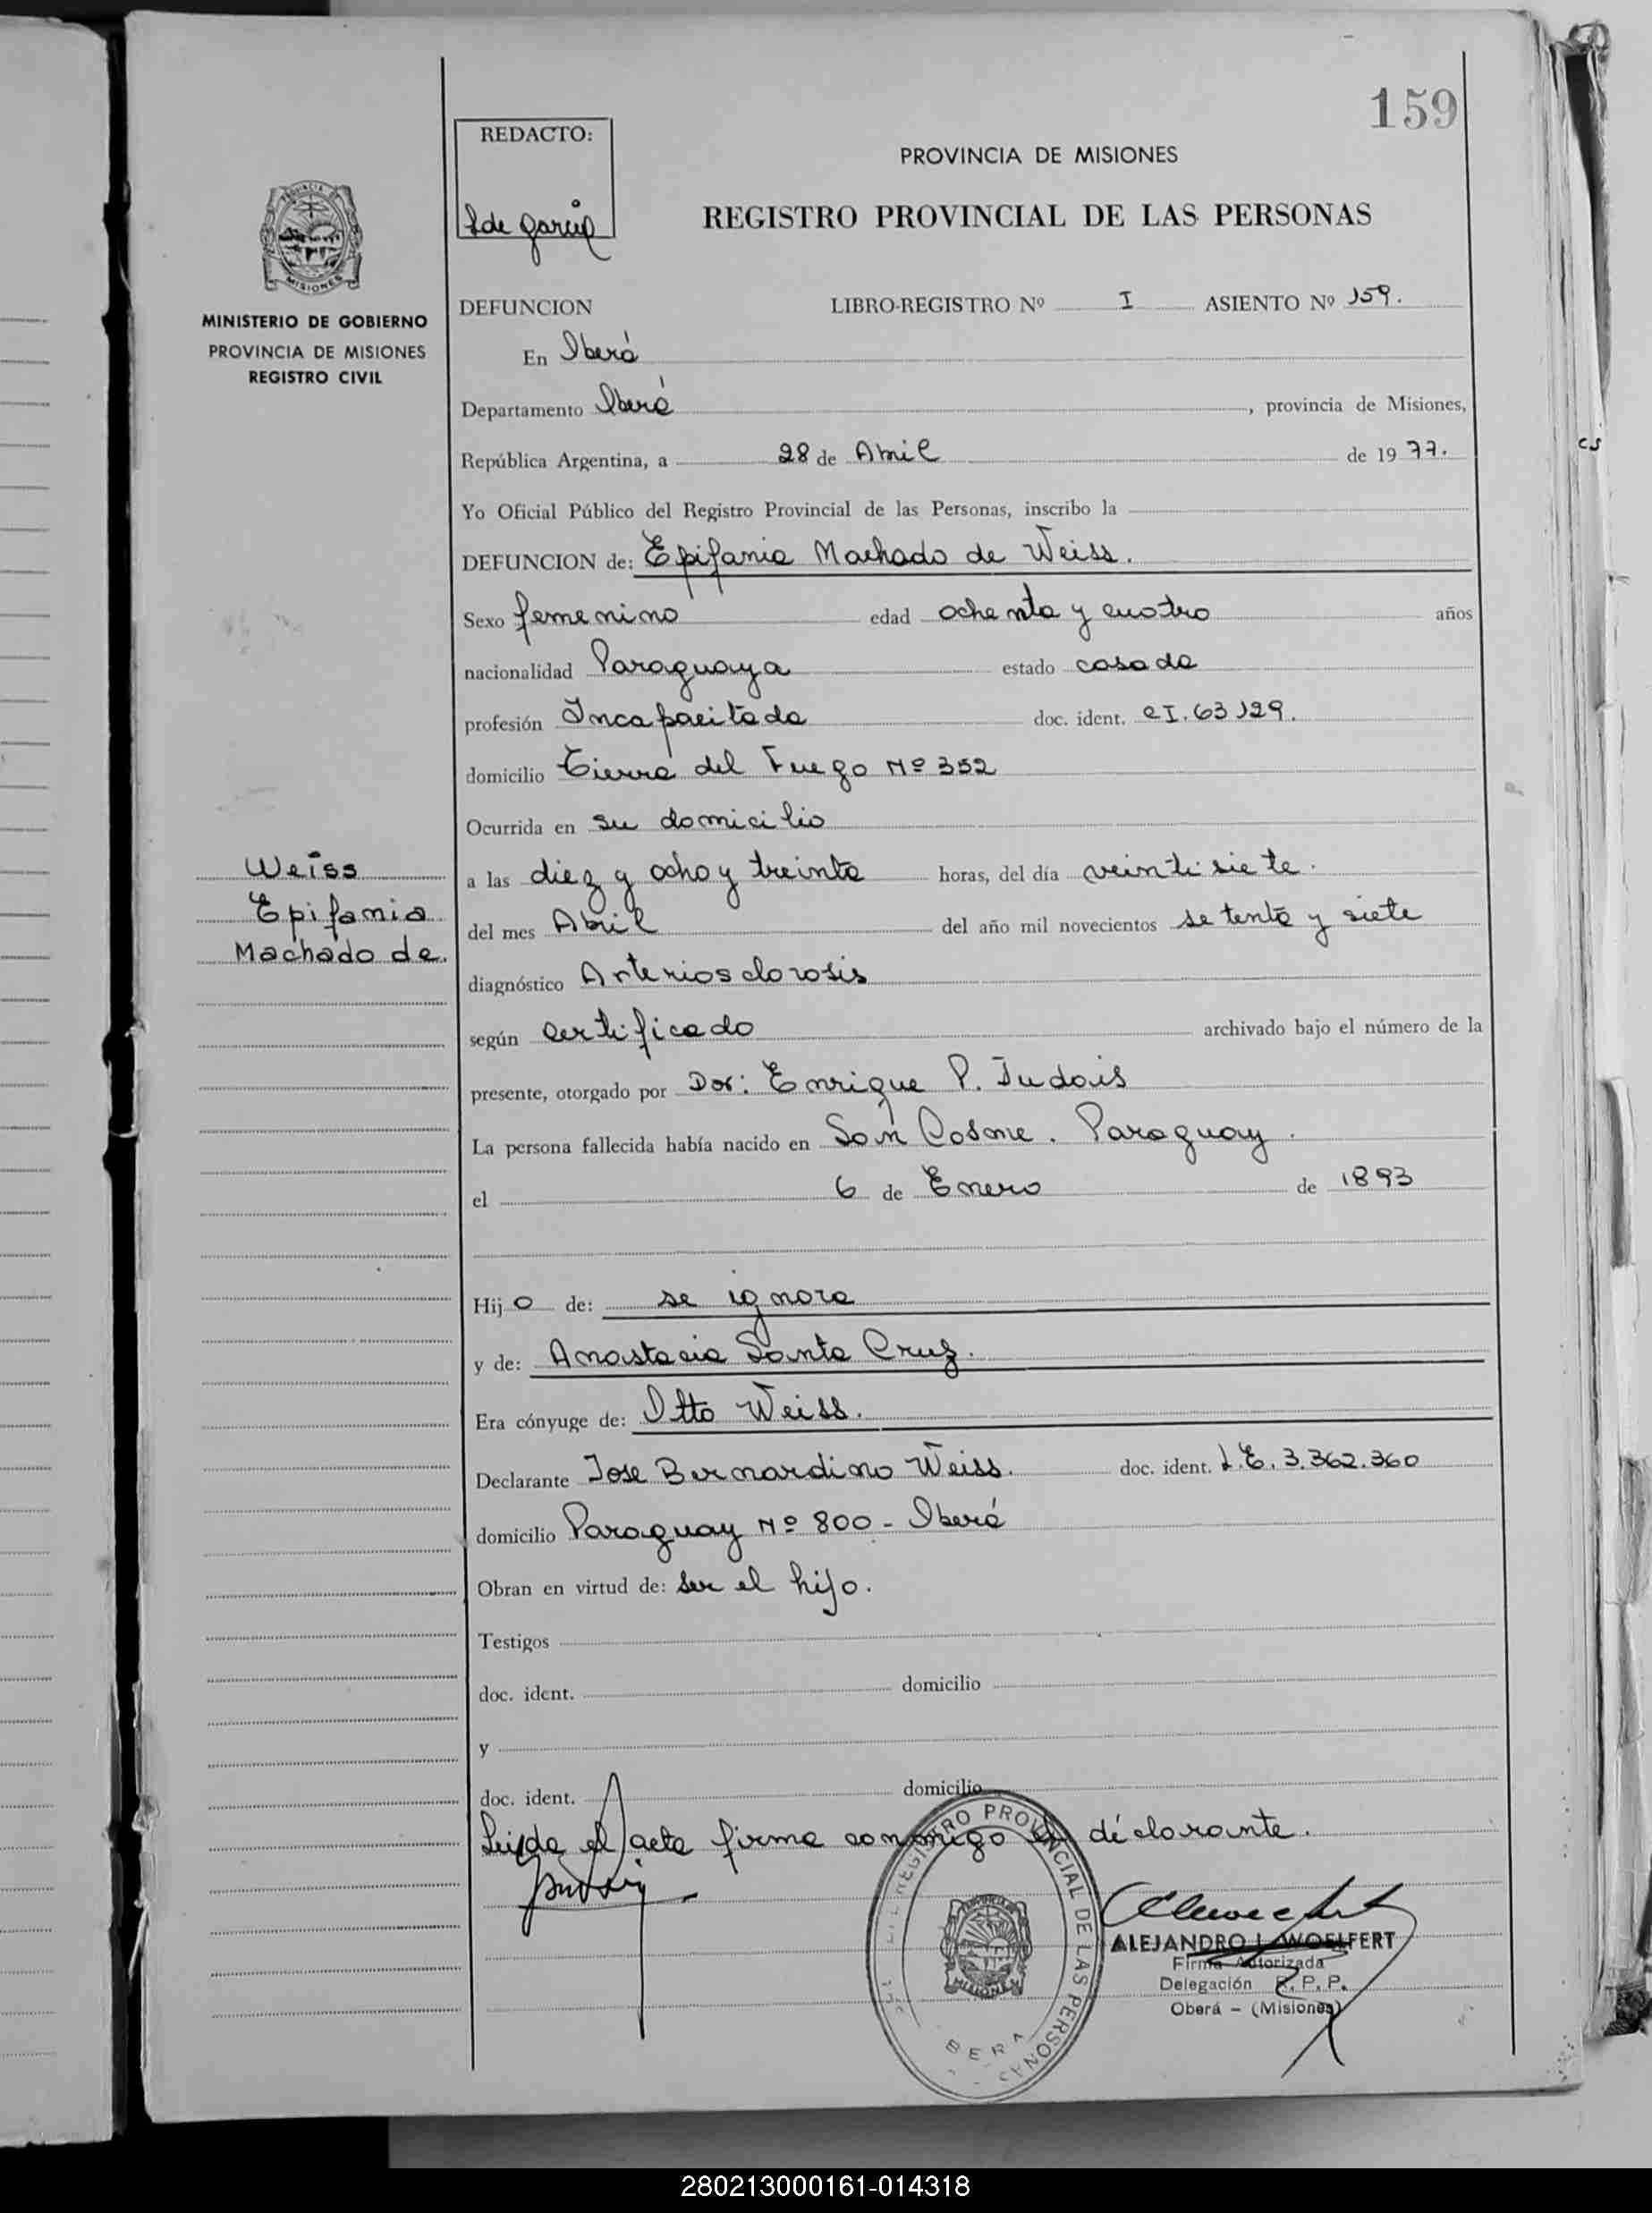 159
REDACTO:
PROVINCIA DE MISIONES
REGISTRO PROVINCIAL DE LAS PERSONAS
MISIONES
MINISTERIO DE GOBIERNO
PROVINCIA DE MISIONES
REGISTRO CIVIL
DEFUNCION LIBRO-REGISTRO Nº I ASIENTO Nº 159.
En Oberá
Departamento Oberá, provincia de Misiones,
República Argentina, a 28 de Abril de 1977.
Yo Oficial Público del Registro Provincial de las Personas, inscribo la
DEFUNCION de: Epifania Machado de Weiss.
Sexo femenino edad ochenta y cuatro años
nacionalidad Paraguaya estado casada
profesión Incapacitada doc. ident. CI. 63129.
domicilio Tierra del Fuego Nº 352
Ocurrida en su domicilio
a las diez y ocho y treinta horas, del día veintisiete.
del mes Abril del año mil novecientos setenta y siete
diagnóstico Arteriosclorosis
según certificado archivado bajo el número de la
presente, otorgado por Dor: Enrique P. Judais
La persona fallecida había nacido en San Cosme. Paraguay.
el 6 de Enero de 1893
Hijo de: se ignora
y de: Anastacia Santa Cruz.
Era cónyuge de: Otto Weiss.
Declarante Jose Bernardino Weiss. doc. ident. L.E. 3.362.360
domicilio Paraguay Nº 800 - Oberá
Obran en virtud de: ser el hijo.
Testigos
doc. ident. domicilio
y
doc. ident. domicilio
Leida el acta firma conmigo el declarante.
Weiss
Epifania
Machado de.
REGISTRO PROVINCIAL DE LAS PERSONAS
ALEJANDRO L. WOELFERT
Firma Autorizada
Delegación R.P.P.
Oberá - (Misiones)
280213000161-014318